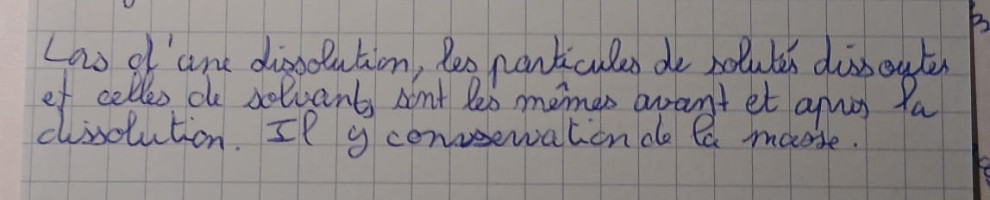 Lors d'une dissolution, les particules de solutés dissoutes
et celles de solvants sont les mêmes avant et après la
dissolution. Il y conservation de la masse.